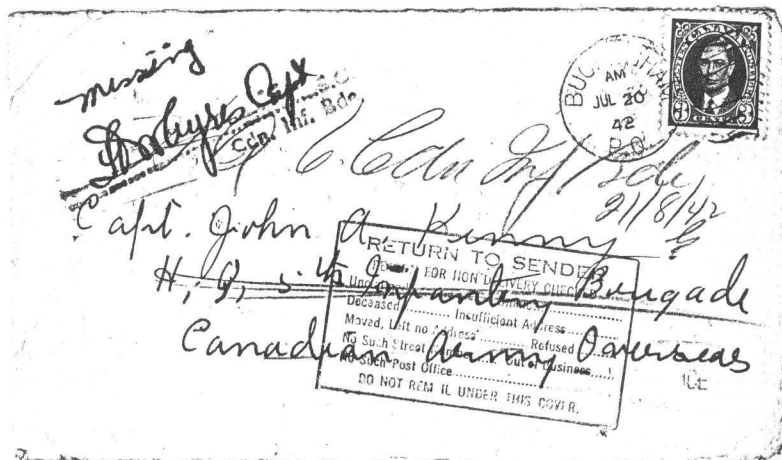 missing
Capt
S.C.
Cdn. Inf. Bde
BUCKINGHAM
AM
JUL 20
42
P.Q.
POSTES CANADA POSTAGE
3 CENTS 3
6. Cdn Inf Bde
21/8/42
Capt. John A. Kenny
H.Q. 5th Infantry Brigade
Canadian Army Overseas
RETURN TO SENDER
FOR NON DELIVERY CHECKED
Deceased ........ Insufficient Address ........
Moved, Left no Address ........ Refused ........
No Such Street ........ Out of Business ........
No Such Post Office ........
DO NOT REMAIL UNDER THIS COVER.